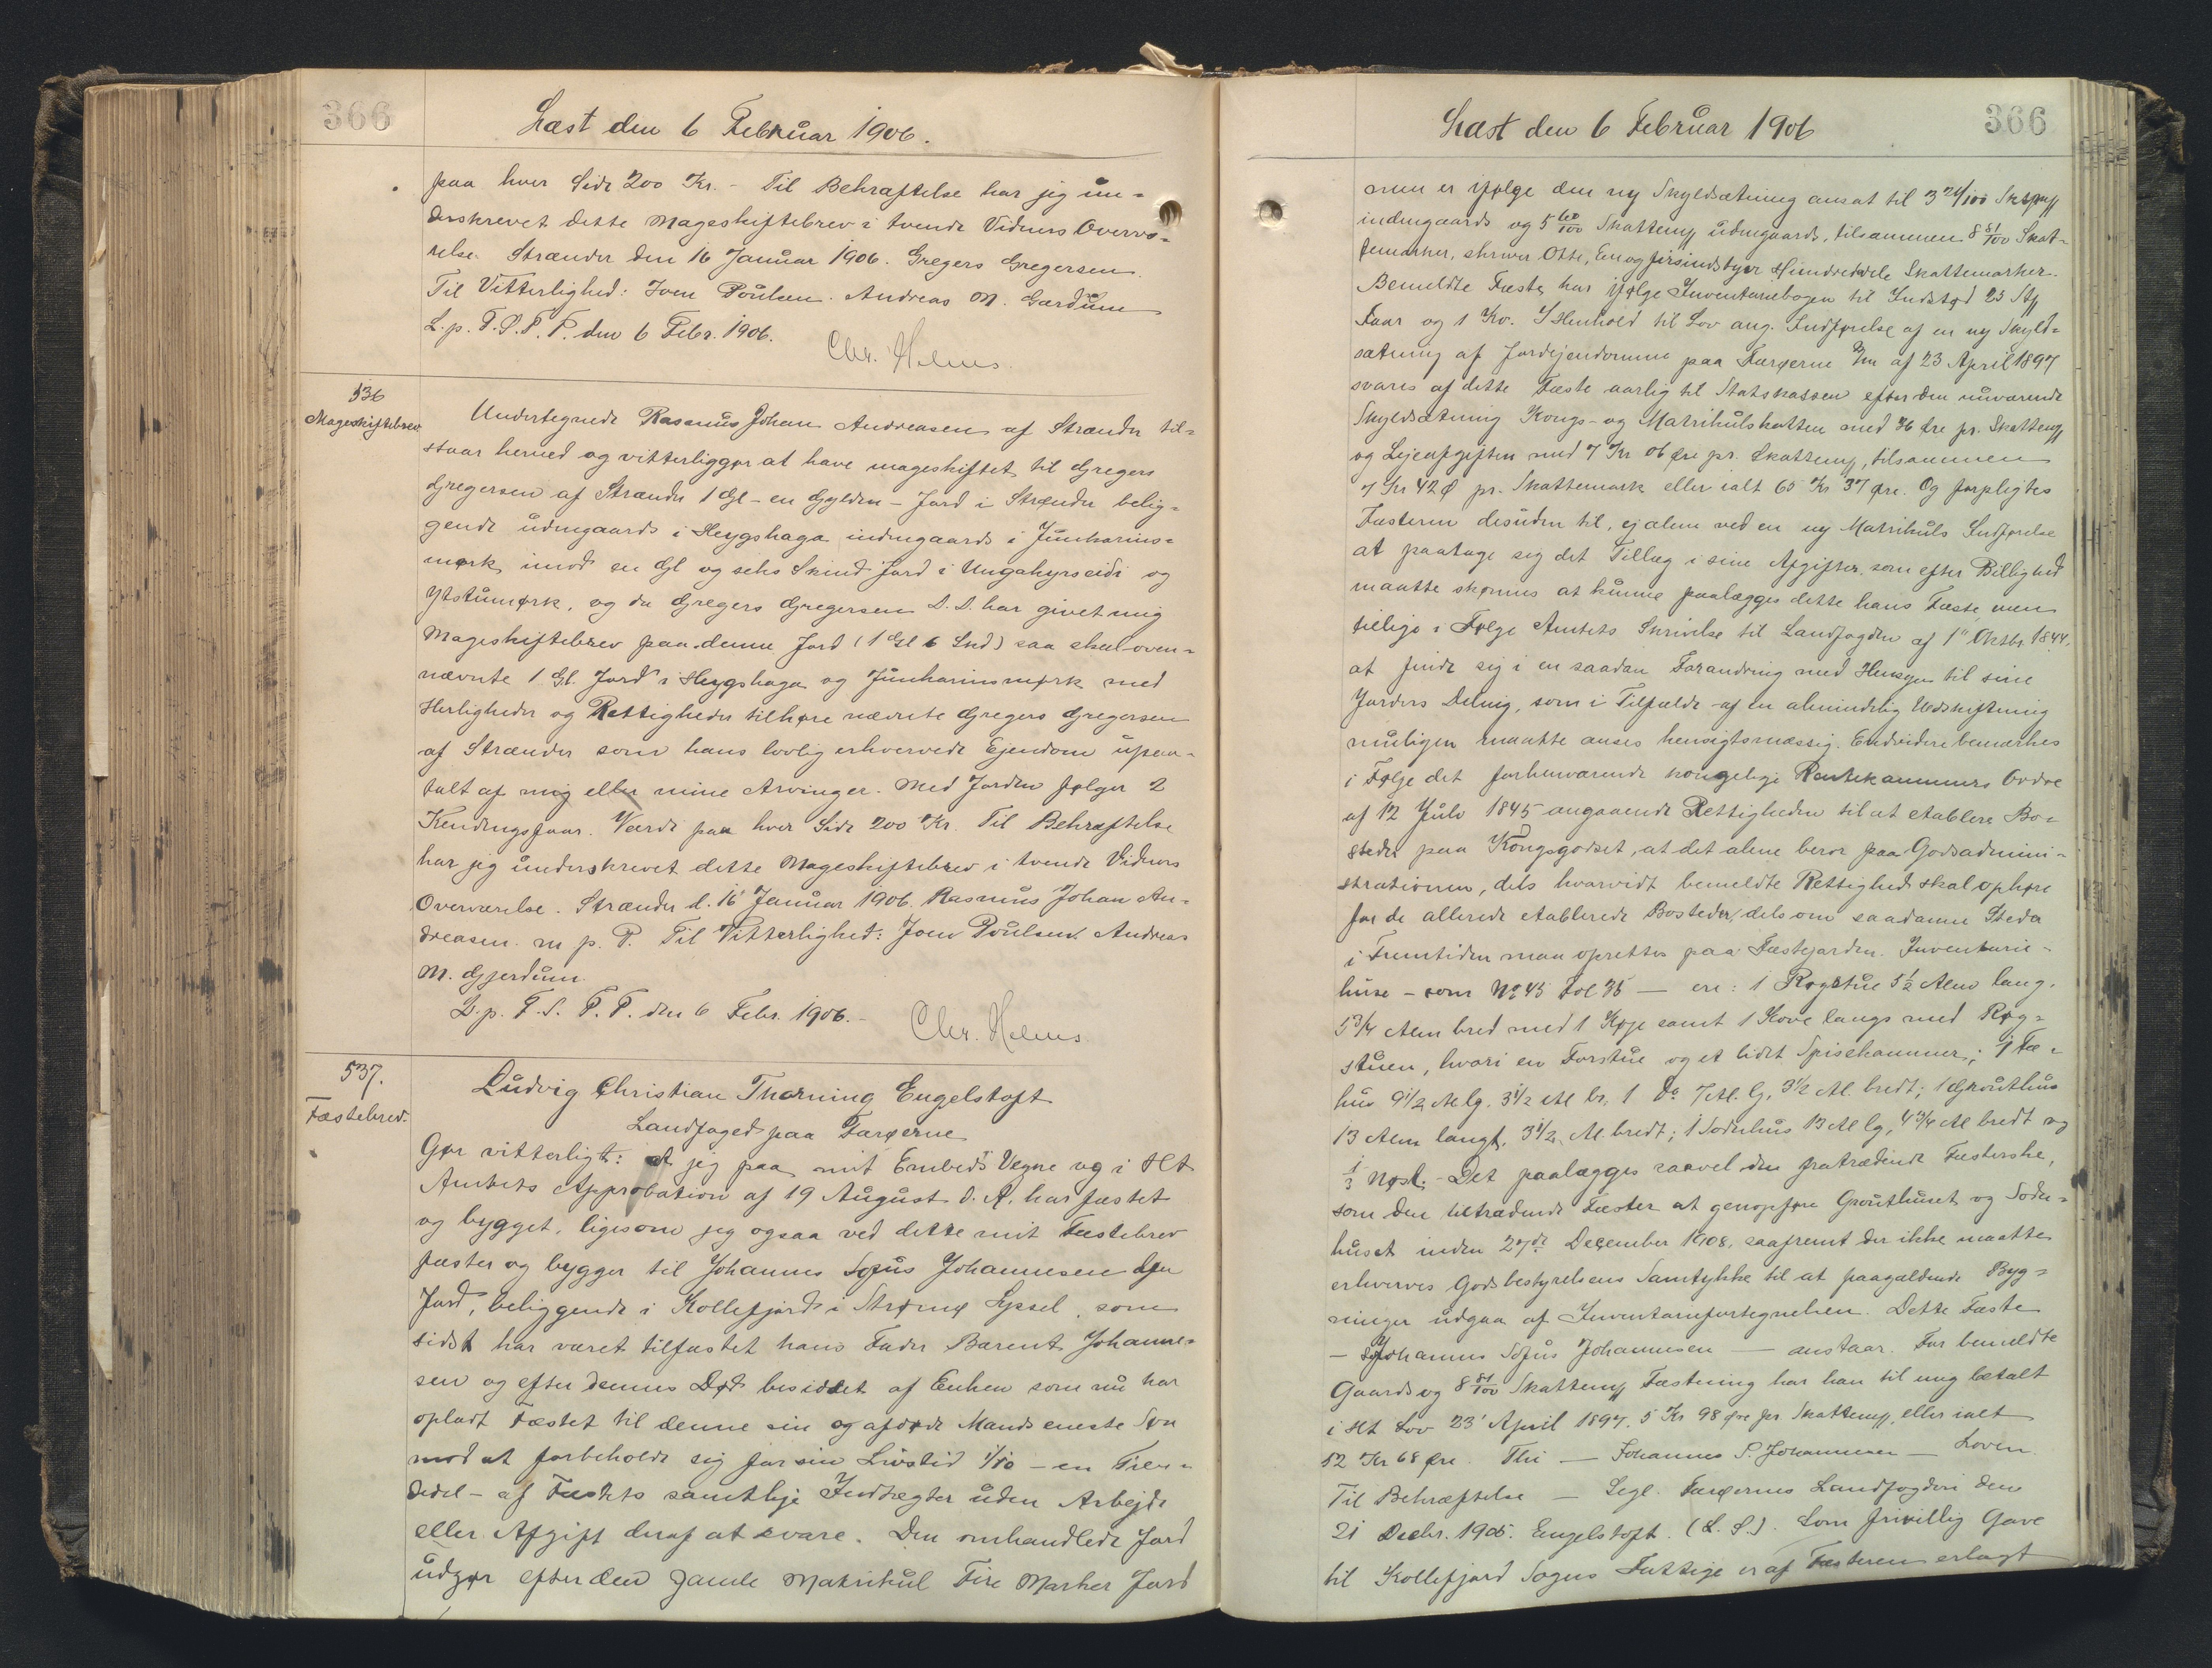 366
Læst den 6 Februar 1906.
paa hver Side 200 Kr. - Til Bekræftelse har jeg un-
derskrevet dette Mageskiftebrev i tvende Vidners Overvæ-
relse. Strænder den 16 Januar 1906. Gregers Gregersen.
Til Vitterlighed: Joen Poulsen. Andreas M. Gærdum
L. p. F. S. P. T. den 6 Febr. 1906.
Chr. Helms.
536
Mageskiftebrev.
Undertegnede Rasmus Johan Andreasen af Strænder til-
staar herved og vitterliggør at have mageskiftet til Gregers
Gregersen af Strænder 1 Gl - en Gylden - Jord i Strænder belig-
gende udengaards i Heygshaga indengaards i Junkarins-
mørk imod en Gl og seks Skind Jord i Ungakyrseidi og
Ytstumørk, og da Gregers Gregersen D. D. har givet mig
Mageskiftebrev paa denne Jord (1 Gl 6 Skd) saa skal oven-
nævnte 1 Gl. Jord i Heygshaga og Junkarinsmørk med
Herligheder og Rettigheder tilhøre nævnte Gregers Gregersen
af Strænder som hans lovlig erhvervede Ejendom upaa-
talt af mig eller mine Arvinger. Med Jorden følger 2
Kendingsfaar. Værdi paa hver Side 200 Kr. Til Bekræftelse
har jeg underskrevet dette Mageskiftebrev i tvende Vidners
Overværelse. Strænder d. 16 Januar 1906. Rasmus Johan An-
dreasen. m. p. P. Til Vitterlighed: Joen Poulsen. Andreas
M. Gjerdum.
L. p. F. S. P. T. den 6 Febr. 1906. -
Chr. Helms
537.
Fæstebrev.
Ludvig Christian Thorning Engelstoft
Landfoged paa Færøerne
Gør vitterligt: at jeg paa mit Embeds Vegne og i Ht
Amtets Approbation af 19 August d. A. har fæstet
og bygget, ligesom jeg ogsaa ved dette mit Fæstebrev
fæster og bygger til Johannes Sofus Johannesen den
Jord, beliggende i Kollefjord i Strømø Syssel, som
sidst har været tilfæstet hans Fader Barent Johanne-
sen og efter dennes Død besiddet af Enken som nu har
opladt Fæstet til denne sin og afdøde Mands eneste Søn
mod at forbeholde sig for sin Livstid 1/10 - en Tien-
dedel - af Fæstets samtlige Indtægter uden Arbejde
eller Afgift deraf at svare. Den omhandlede Jord
udgør efter den gamle Matrikul Fire Marker Jord
366
Læst den 6 Februar 1906
men er ifølge den ny Skyldsætning ansat til 3 21/100 Sktsmk
indengaards og 5 60/100 Skattemk udengaards, tilsammen 8 81/100 Skat-
temarker, skriver Otte, En og firsindstyve Hundrededele Skattemarker.
Bemeldte Fæste har ifølge Inventariebogen til Indstød 25 Stk
Faar og 1 Ko. I Henhold til Lov ang. Indførelse af en ny Skyld-
sætning af Jordejendomme paa Færøerne m/m af 23 April 1897
svares af dette Fæste aarlig til Statskassen efter den nuværende
Skyldsætning Kongs- og Matrikulskatten med 36 Øre pr. Skattemk
og Lejeafgiften med 7 Kr 06 Øre pr. Skattemk, tilsammen
7 Kr 42 Ø pr. Skattemark eller ialt 65 Kr 37 Øre. Og forpligtes
Fæsteren desuden til, ej alene ved en ny Matrikuls Indførelse
at paatage sig det Tillæg i sine Afgifter, som efter Billighed
maatte skønnes at kunne paalægges dette hans Fæste men
tillige i Følge Amtets Skrivelse til Landfogden af 1" Oktbr. 1844.
at finde sig i en saadan Forandring med Hensyn til sine
Jorders Deling, som i Tilfælde af en almindelig Udskiftning
muligen maatte anses hensigtsmæssig. Endvidere bemærkes
i Følge det forhenværende kongelige Rentekammers Ordre
af 12 Juli 1845 angaaende Rettigheden til at etablere Bo-
steder paa Kongsgodset, at det alene beror paa Godsadmini-
strationen, dels hvorvidt bemeldte Rettighed skal ophøre
for de allerede etablerede Bosteder, dels om saadanne Steder
i Fremtiden maa oprettes paa Fæstejorden. Inventarie-
huse - som No 45 Fol 35 - ere: 1 Røgstue 5 1/2 Alen lang,
5 3/4 Alen bred med 1 Køje samt 1 Kove langs med Røg-
stuen, hvori en Forstue og et lidet Spisekammer; 1 Fæ-
hus 9 1/2 Al lg. 3 1/2 Al br. 1 Do 7 Al. lg. 3 1/2 Al. bredt; 1 Grouthus
13 Alen langt, 3 1/2 Al. bredt; 1 Sodnhus 13 Al lg, 4 3/4 Al bredt og
1/3 Nøst. - Det paalægges saavel den fratrædende Fæsterske,
som den tiltrædende Fæster at genopføre Grouthuset og Sodn-
huset inden 27de December 1908, saafremt der ikke maatte
erhverves Godsbestyrelsens Samtykke til at paagældende Byg-
ninger udgaa af Inventariefortegnelsen. Dette Fæste
- Johannes Sofus Johannesen - anstaar. For bemeldte
Gaards og 8 81/100 Skattemk Fæstning har han til mig betalt
i Ht Lov 23' April 1897. 5 Kr 98 Øre pr Skattemk, eller ialt
52 Kr 68 Øre. Thi - Johannes S. Johannesen - Loven.
Til Bekræftelse - Segl. Færøernes Landfogderi den
21 Decbr. 1905. Engelstoft. (L. S.). Som frivillig Gave
til Kollefjord Sogns Fattige er af Fæsteren erlagt